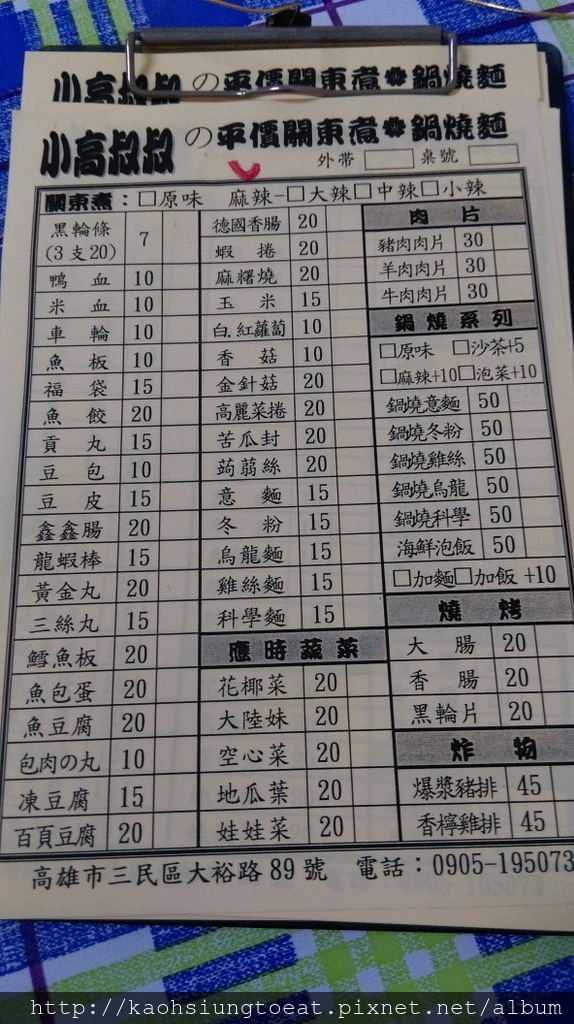 小高叔叔の平價關東煮鍋燒麵
小高叔叔の平價關東煮鍋燒麵
外帶 桌號
關東煮：□原味 麻辣-□大辣□中辣□小辣
黑輪條
(3支20) 7
鴨血 10
米血 10
車輪 10
魚板 10
福袋 15
魚餃 20
貢丸 15
豆包 10
豆皮 15
鑫鑫腸 20
龍蝦棒 15
黃金丸 20
三絲丸 15
鱈魚板 20
魚包蛋 20
魚豆腐 20
包肉の丸 10
凍豆腐 15
百頁豆腐 20
德國香腸 20
蝦捲 20
麻糬燒 20
玉米 15
白.紅蘿蔔 10
香菇 10
金針菇 20
高麗菜捲 20
苦瓜封 20
蒟蒻絲 20
意麵 15
冬粉 15
烏龍麵 15
雞絲麵 15
科學麵 15
應時蔬菜
花椰菜 20
大陸妹 20
空心菜 20
地瓜葉 20
娃娃菜 20
肉片
豬肉肉片 30
羊肉肉片 30
牛肉肉片 30
鍋燒系列
□原味 □沙茶+5
□麻辣+10□泡菜+10
鍋燒意麵 50
鍋燒冬粉 50
鍋燒雞絲 50
鍋燒烏龍 50
鍋燒科學 50
海鮮泡飯 50
□加麵□加飯 +10
燒烤
大腸 20
香腸 20
黑輪片 20
炸物
爆漿豬排 45
香檸雞排 45
高雄市三民區大裕路89號 電話：0905-195073
http://kaohsiungtoeat.pixnet.net/album